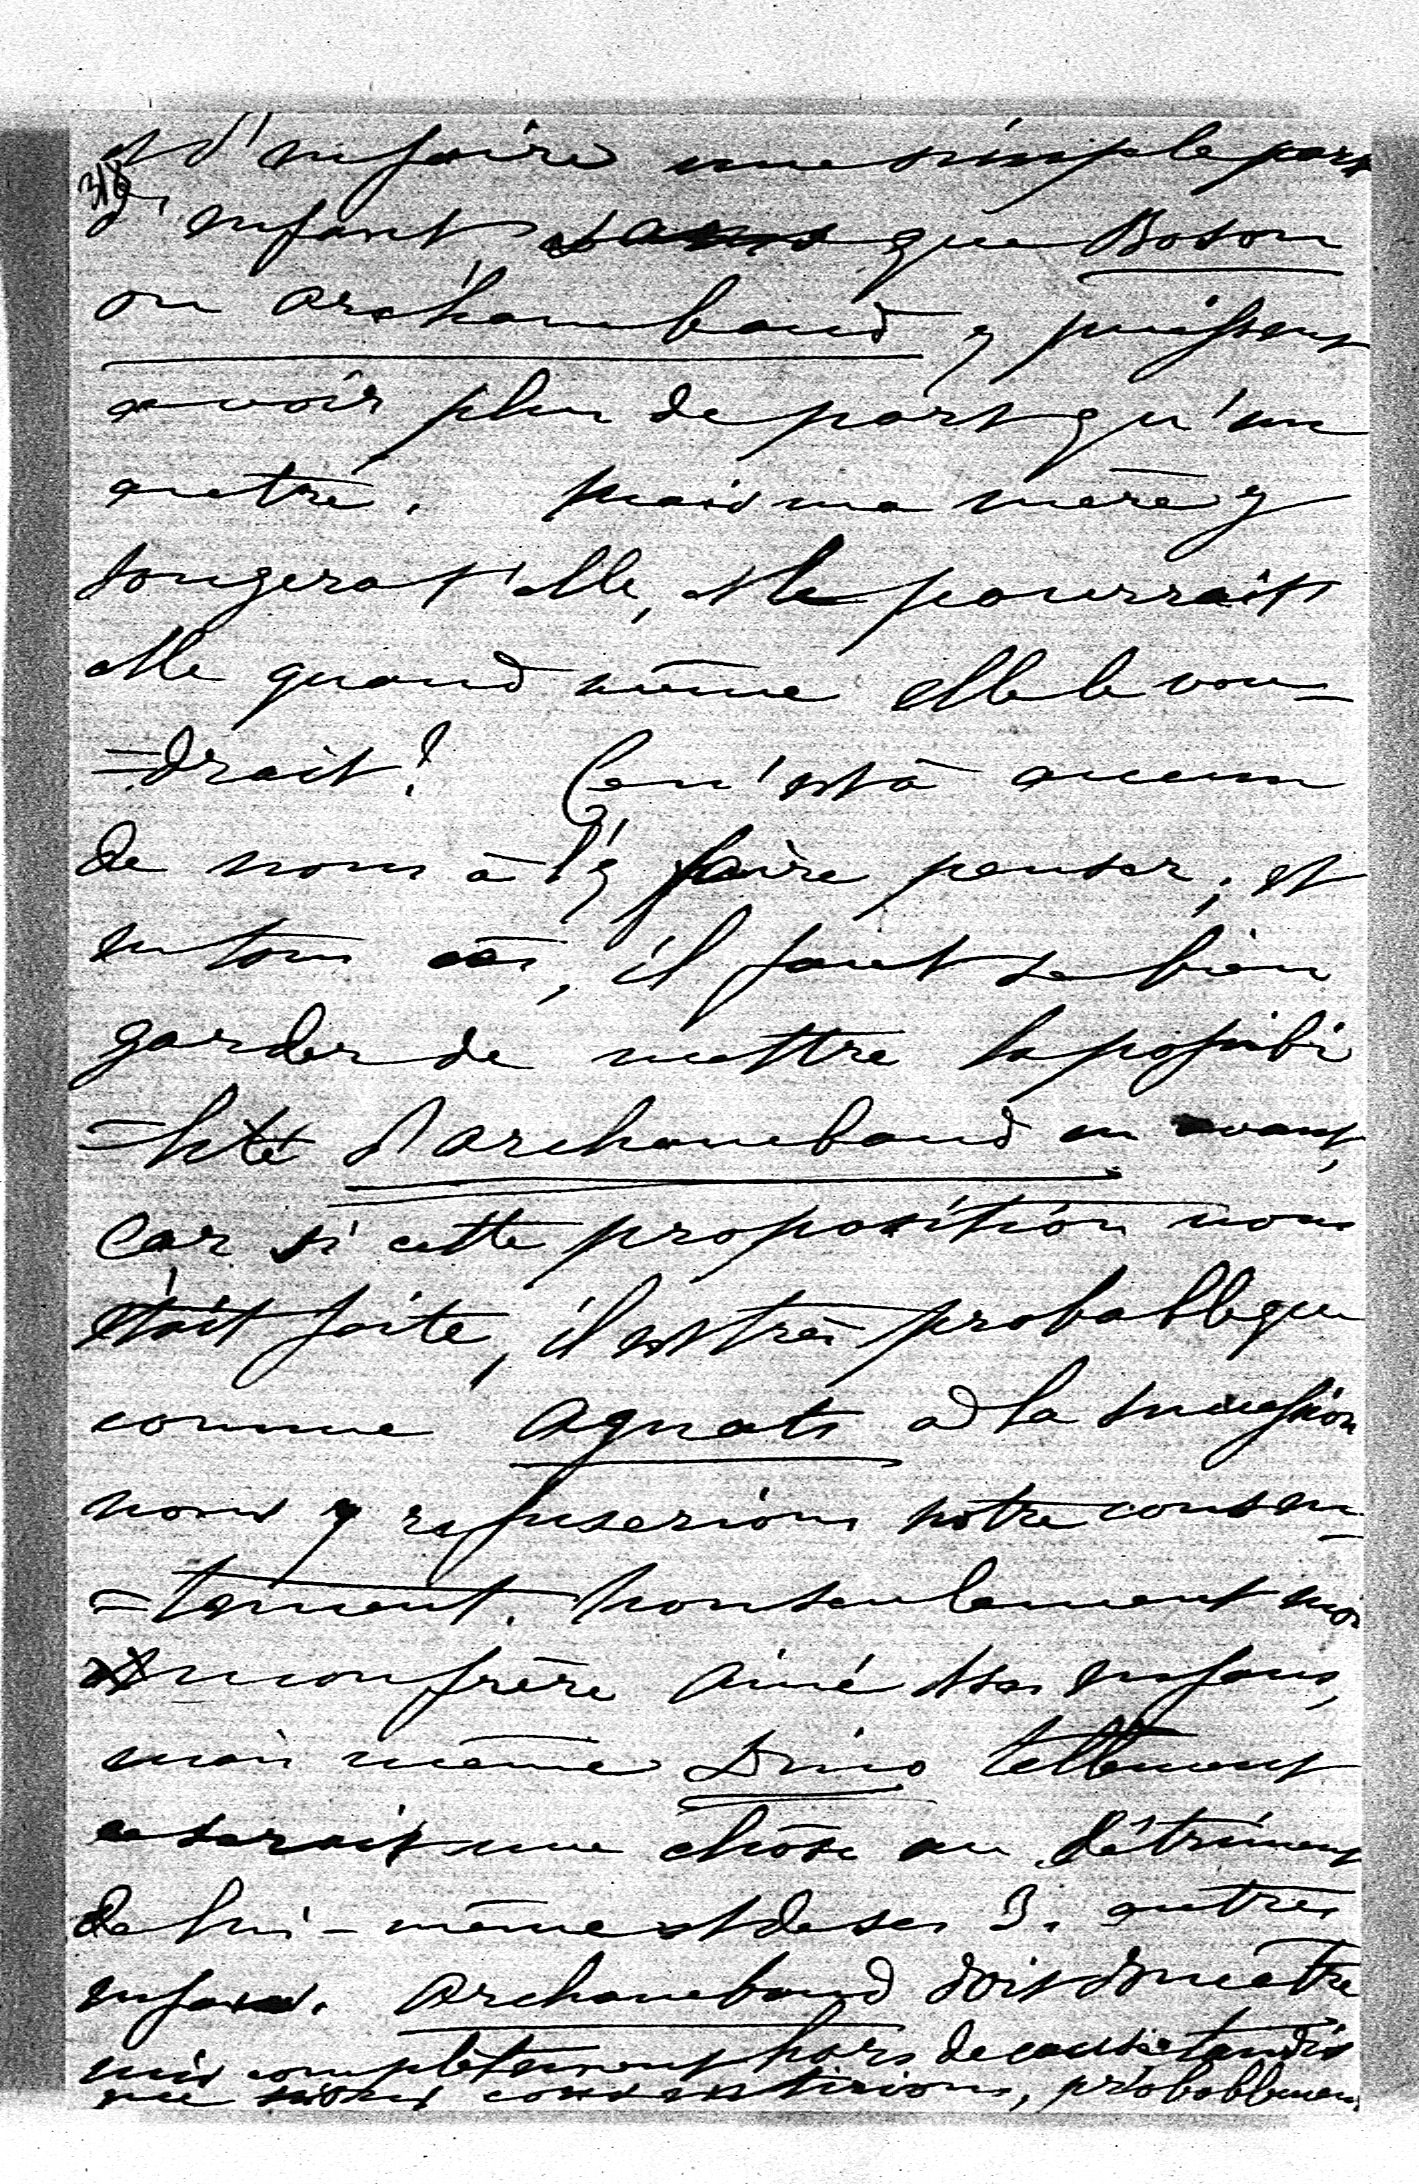 et d'en faire une simple part
318
d'enfant sans que Boson
ou archambaud y puissent
avoir plus de part qu'un
autre. Mais ma mère y
songera t'elle, et le pourrait
elle quand même elle le vou-
=drait! Ce n'est à aucun
de nous à l'y faire penser; et
en tous cas, il faut se bien
garder de mettre la possibi
=lité d'archambaud en avant,
Car si cette proposition nous
était faite, il est très probable que
comme agnats à la succession
nous y refuserions notre consen-
=tement. Non seulement moi
et mon frère aîné et ses enfans,
mais même Dino tellement
ce serait une chose au détriment
de lui-même et de ses 3. autres
enfans. Archambaud doit donc être
mis complètement hors de cause tandis
que nous consentirions, probablement